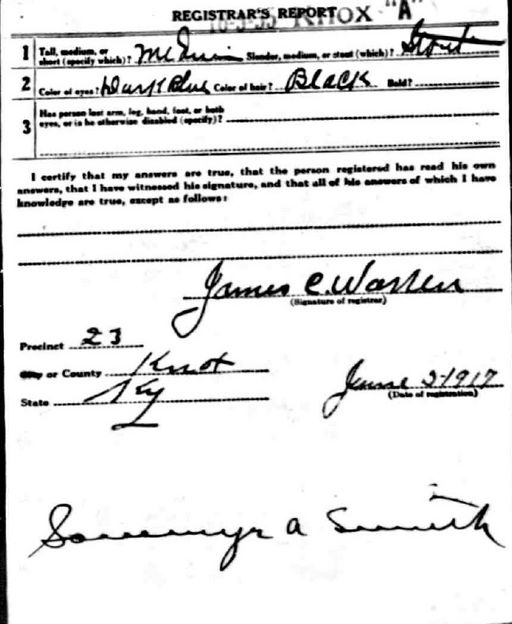 REGISTRAR'S REPORT KNOX "A"
1 Tall, medium, or short (specify which)? Medium Slender, medium, or stout (which)? Stout
2 Color of eyes? Dark Blue Color of hair? Black Bald?
3 Has person lost arm, leg, hand, foot, or both
eyes, or is he otherwise disabled (specify)?
I certify that my answers are true, that the person registered has read his own
answers, that I have witnessed his signature, and that all of his answers of which I have
knowledge are true, except as follows:
James C. Warren
(Signature of registrar)
Precinct 23
City or County Knox
State Ky
June 5-1917
(Date of registration)
A Smith